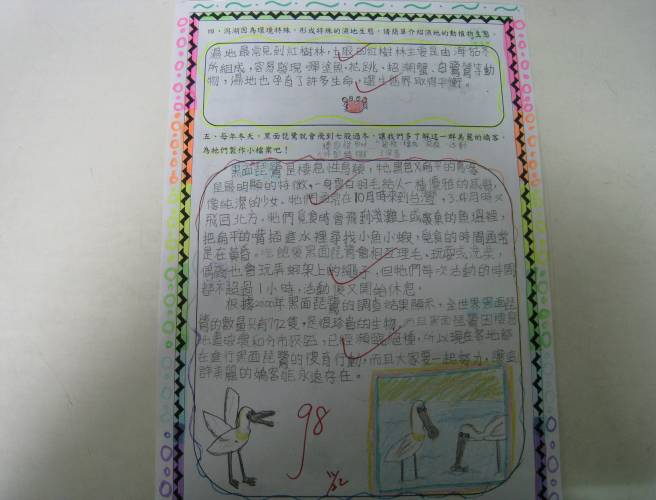 四、潟湖因為環境特殊,形成特殊的濕地生態,請簡單介紹濕地的動植物生態。
濕地最常見到紅樹林,七股的紅樹林主要是由海茄苳
所組成,容易發現:彈塗魚、花跳、招潮蟹、白鷺鷥等動
物,濕地也孕育了許多生命,讓生態界取得平衡。
五、每年冬天,黑面琵鷺就會飛到七股過冬,讓我們多了解這一群美麗的嬌客,
為牠們製作小檔案吧!
黑面琵鷺是棲息性鳥類,牠黑色又扁平的
是最明顯的特徵,一身雪白羽毛給人一種優雅的感覺,
像純潔的少女。牠們通常在10月時來到台灣,3、4月時又
飛回北方。牠們覓食時會飛到淺灘上或廢棄的魚塭裡,
把扁平的嘴插進水裡尋找小魚小蝦,覓食的時間通常
是在黃昏。吃飽後黑面琵鷺會相互理毛、玩耍或洗澡,
偶爾也會玩弄蚵架上的繩子,但牠們每次活動的時間
都不超過1小時,活動後又開始休息。
根據2000年黑面琵鷺的調查結果顯示,全世界黑面琵
鷺的數量只有772隻,是很珍貴的生物。而且黑面琵鷺因棲息
地遭破壞和分布狹隘,已經瀕臨絕種,所以現在各地都
在進行黑面琵鷺的復育行動,而且大家要一起努力,讓這
群美麗的嬌客能永遠存在。
98